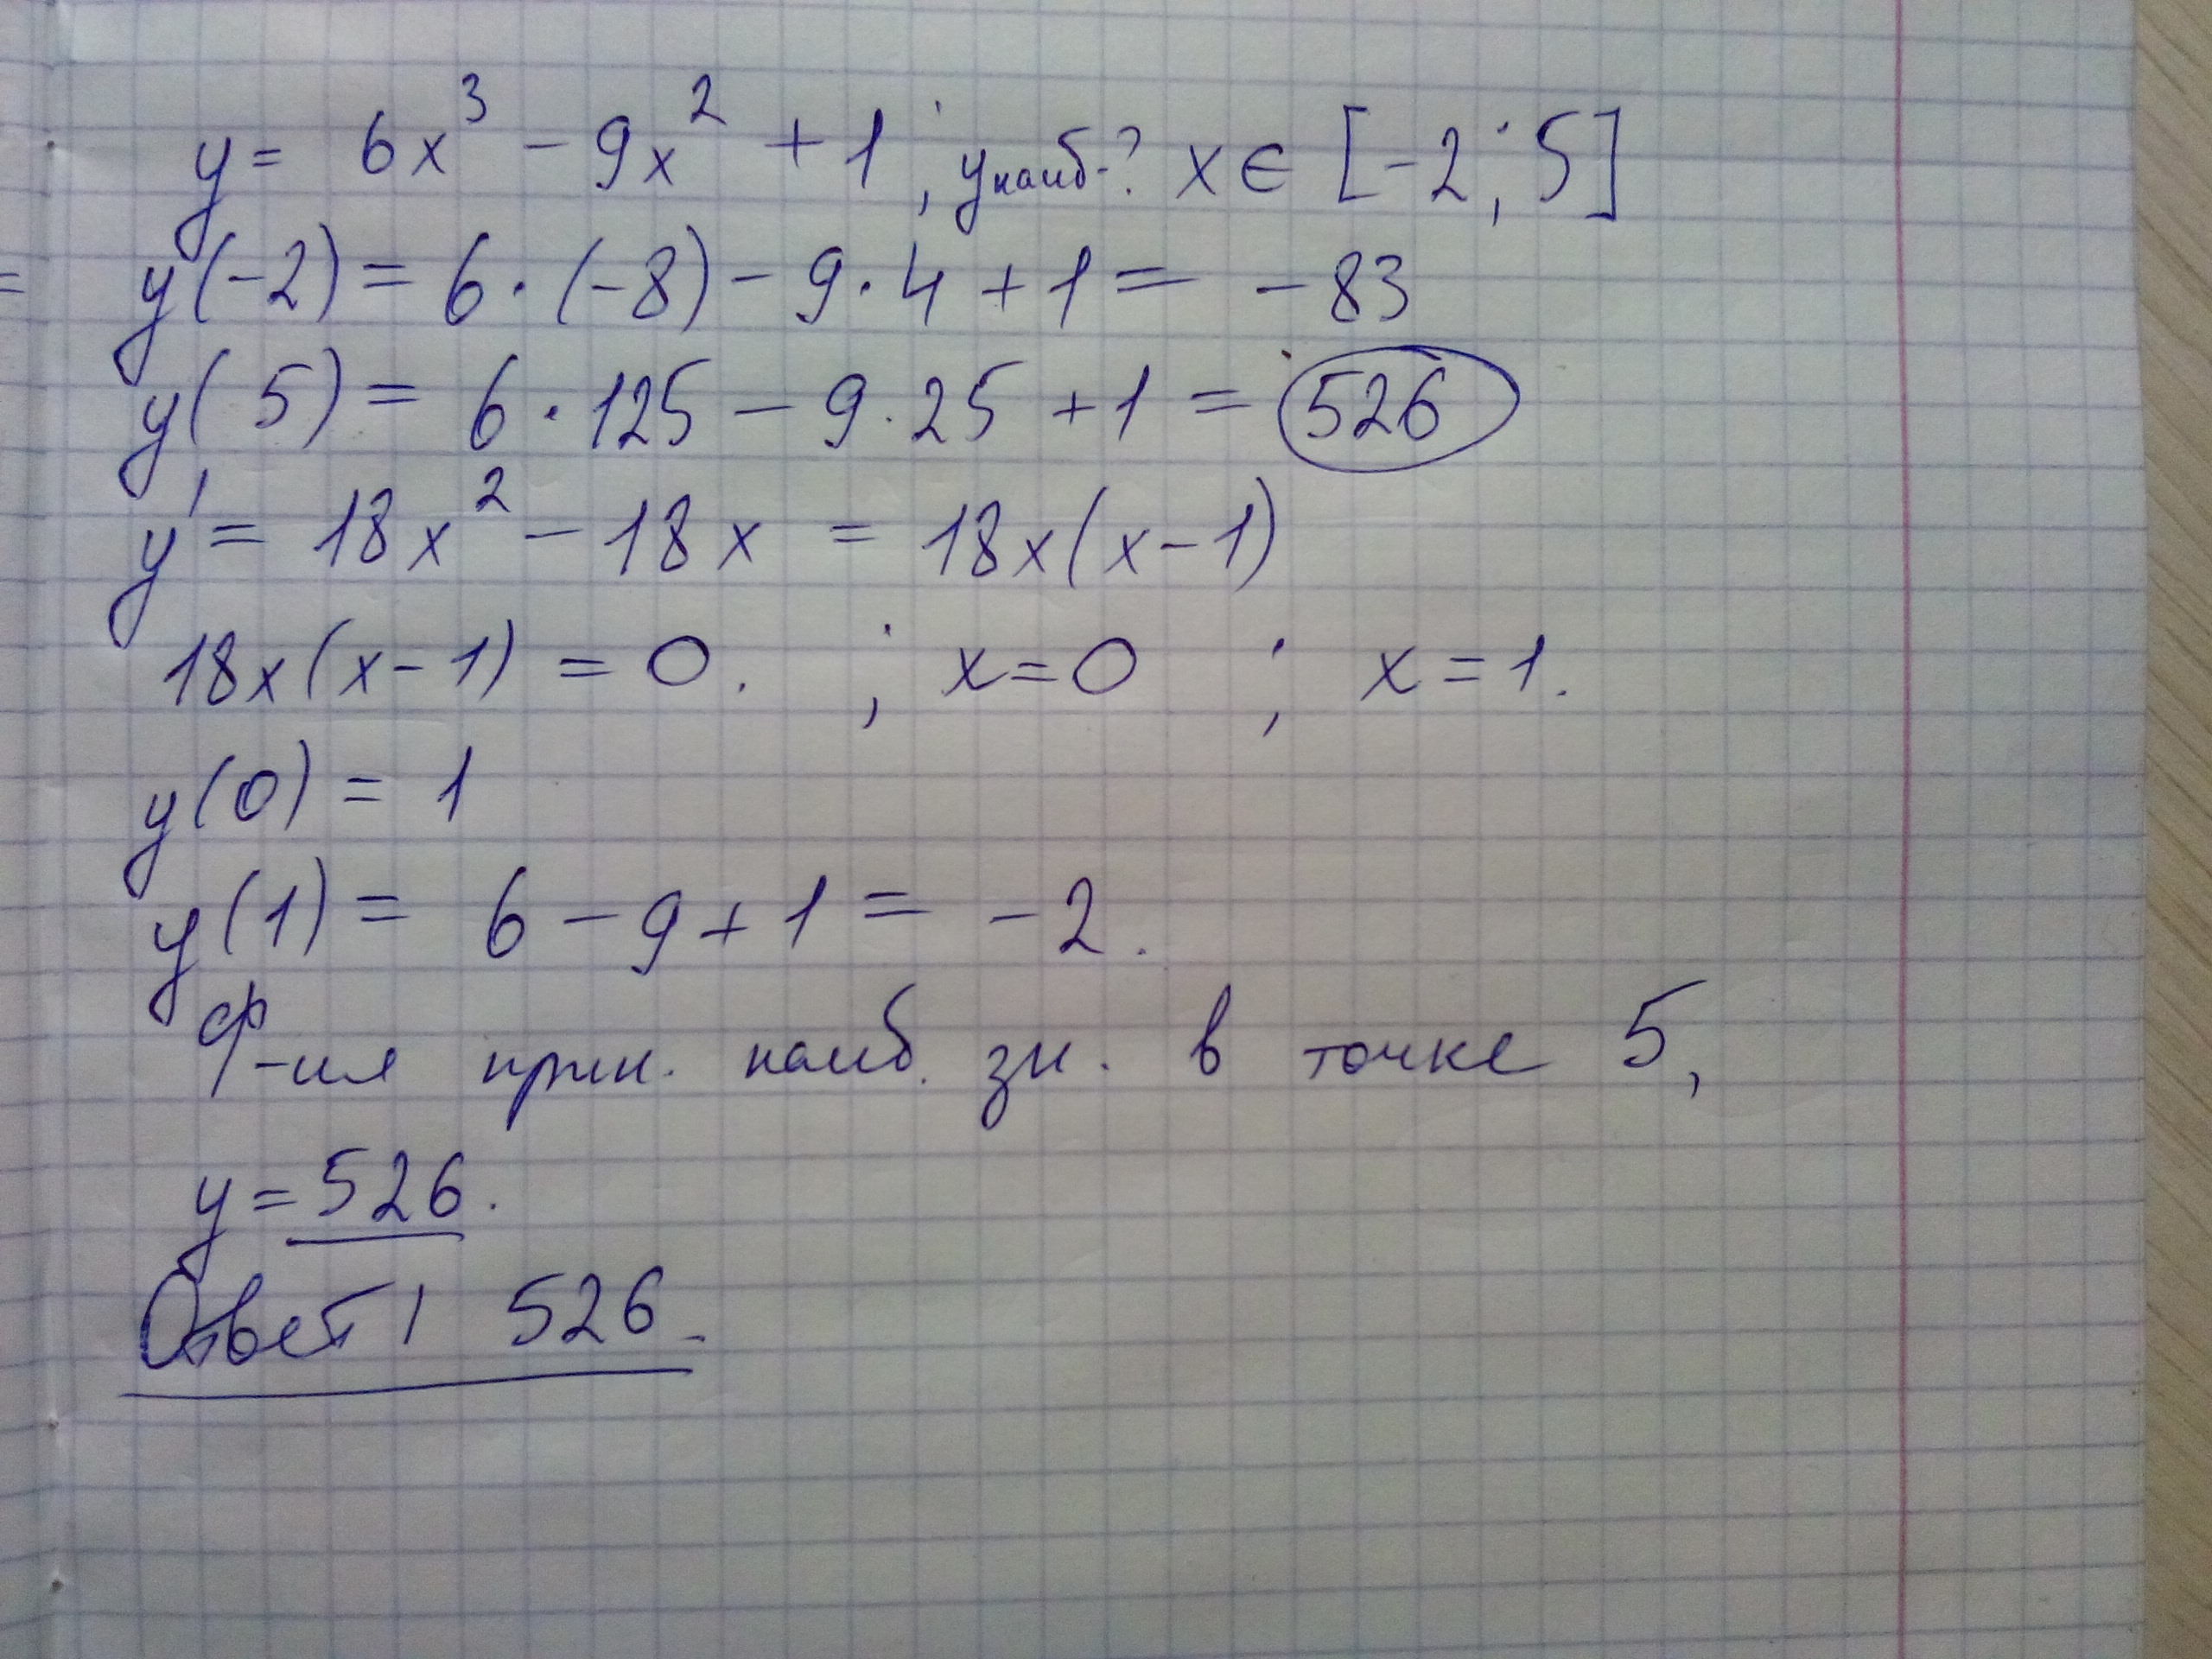 y = 6x³ - 9x² + 1 ; yнаиб-? x ∈ [-2; 5]
y(-2) = 6·(-8) - 9·4 + 1 = -83
y(5) = 6·125 - 9·25 + 1 = 526
y' = 18x² - 18x = 18x(x-1)
18x(x-1) = 0. ; x=0 ; x=1.
y(0) = 1
y(1) = 6 - 9 + 1 = -2.
Ф-ия прин. наиб. зн. в точке 5,
y = 526.
Ответ: 526.